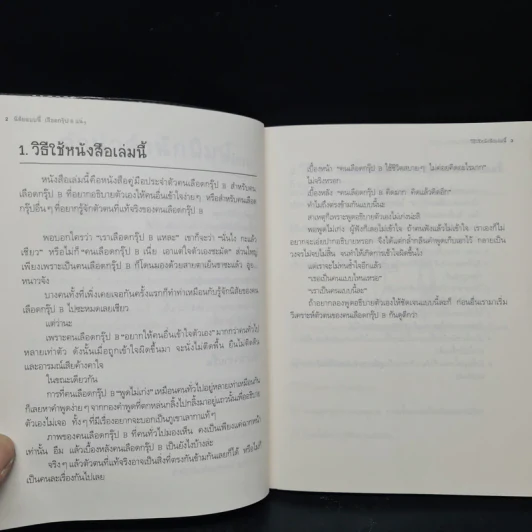 2 นิสัยแบบนี้ เลือดกรุ๊ป B แหงๆ
1. วิธีใช้หนังสือเล่มนี้
หนังสือเล่มนี้คือหนังสือคู่มือประจำตัวคนเลือดกรุ๊ป B สำหรับคน
เลือดกรุ๊ป B ที่อยากอธิบายตัวเองให้คนอื่นเข้าใจง่ายๆ หรือสำหรับคนเลือด
กรุ๊ปอื่นๆ ที่อยากรู้จักตัวตนที่แท้จริงของคนเลือดกรุ๊ป B
พอบอกใครว่า "เราเลือดกรุ๊ป B แหละ" เขาก็จะว่า "นั่นไง กะแล้ว
เชียว" หรือไม่ก็ "คนเลือดกรุ๊ป B เนี่ย เอาแต่ใจตัวเองชะมัด" ส่วนใหญ่
เพียงเพราะเป็นคนเลือดกรุ๊ป B ก็โดนมองด้วยสายตาเย็นชาซะแล้ว
หนาวจัง
บางคนทั้งที่เพิ่งเคยเจอกันครั้งแรกก็ทำท่าเหมือนกับรู้จักนิสัยของคน
เลือดกรุ๊ป B ไปซะหมดเลยเชียว
แต่ว่านะ
เพราะคนเลือดกรุ๊ป B "อยากให้คนอื่นเข้าใจตัวเอง" มากกว่าคนทั่วไป
หลายเท่าตัว ดังนั้นเมื่อถูกเข้าใจผิดขึ้นมา จะนั่งไม่ติดพื้น ยืนไม่ติดดิน
และอารมณ์เสียค้างคาใจ
ในขณะเดียวกัน
การที่คนเลือดกรุ๊ป B "พูดไม่เก่ง" เหมือนคนทั่วไปอยู่หลายเท่าเหมือนกัน
ก็เลยหาคำพูดง่ายๆ จากกองคำพูดที่ตกหล่นกลิ้งไปกลิ้งมาอยู่แถวนั้นเพื่ออธิบาย
ตัวเองไม่เจอ ทั้งๆ ที่มีเรื่องอยากจะบอกเป็นภูเขาเลากาแท้ๆ
ภาพของคนเลือดกรุ๊ป B ที่คนทั่วไปมองเห็น คงเป็นเพียงแค่ฉากหน้า
เท่านั้น อืม แล้วเบื้องหลังคนเลือดกรุ๊ป B เป็นยังไงบ้างล่ะ
จริงๆ แล้วตัวตนที่แท้จริงอาจเป็นสิ่งที่ตรงกันข้ามกันเลยก็ได้ หรือไม่ก็
เป็นคนละเรื่องกันไปเลย
วิธีใช้หนังสือเล่มนี้ 3
เบื้องหน้า "คนเลือดกรุ๊ป B ใช้ชีวิตสบายๆ ไม่ค่อยคิดอะไรมาก"
ไม่จริงหรอก
เบื้องหลัง "คนเลือดกรุ๊ป B คิดมาก คิดแล้วคิดอีก"
ทำไมถึงตรงข้ามกันแบบนี้นะ
สาเหตุก็เพราะพูดอธิบายตัวเองไม่เก่งน่ะสิ
พอพูดไม่เก่ง ผู้ฟังก็เลยไม่เข้าใจ ถ้าคนฟังแล้วไม่เข้าใจ เราเองก็ไม่
อยากจะเอ่ยปากอธิบายหรอก จึงได้แต่กล้ำกลืนคำพูดเก็บเอาไว้ กลายเป็น
วงจรไม่จบไม่สิ้น จนทำให้เกิดการเข้าใจผิดขึ้นไง
แต่เราจะไม่ทนช้ำใจอีกแล้ว
"เธอเป็นคนแบบไหนเหรอ"
"เราเป็นคนแบบนี้ละ"
ถ้าอยากลองพูดอธิบายตัวเองให้ชัดเจนแบบนี้ละก็ ก่อนอื่นเรามาเริ่ม
วิเคราะห์ตัวตนของคนเลือดกรุ๊ป B กันดูดีกว่า